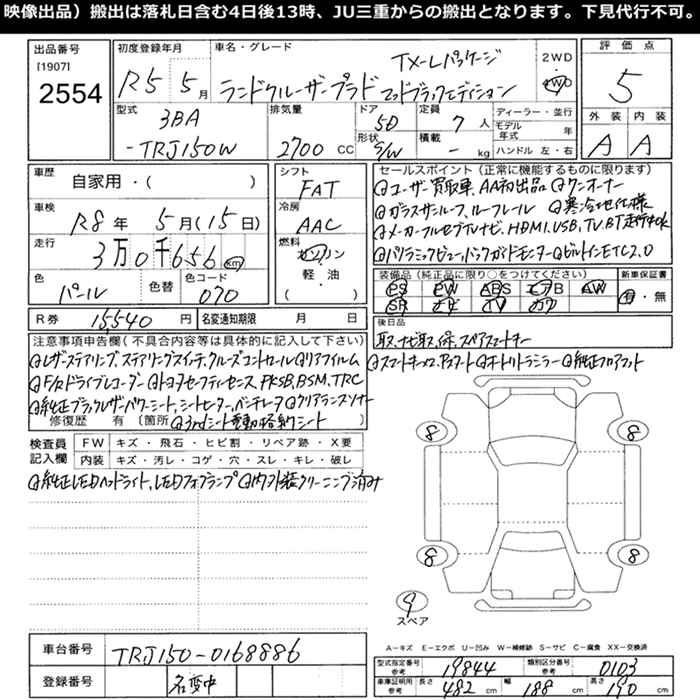 映像出品）搬出は落札日含む4日後13時、JU三重からの搬出となります。下見代行不可。
出品番号
[1907]
2554
初度登録年月
R5 5月
車名・グレード
TX-Lパッケージ
ランドクルーザープラド マットブラックエディション
2WD
4WD
評価点
5
外装 内装
A A
型式
3BA
-TRJ150W
排気量
2700 CC
ドア
5D
形状
S/W
定員
7 人
積載
- kg
ディーラー・並行
モデル年式 年
ハンドル 左・右
車歴
自家用・( )
車検
R8年 5月(15日)
走行
3万0千656 km
色
パール
色替
色コード
070
シフト
FAT
冷房
AAC
燃料
ガソリン
軽・油
( )
セールスポイント（正常に機能するものに限ります）
@ユーザー買取車、AA初出品 @ワンオーナー
@ガラスサンルーフ、ルーフレール @寒冷地仕様
@メーカーフルセグTVナビ、HDMI、USB、TV、BT走行中OK
@パノラミックビュー、バックガイドモニター @ビルトインETC2.0
装備品（純正品に限り○をつけてください）
PS PW ABS エアB AW
SR ナビ TV カワ
新車保証書
有・無
R券
15,540 円
名変通知期限 月 日
後日品
取、ナビ取、保、スペアスマートキー
注意事項申告欄（不具合内容等は具体的に記入して下さい）
@レザーステアリング、ステアリングスイッチ、クルーズコントロール @リアフィルム
@スマートキー×2、Pスタート @オートドリミラー @純正フロアマット
@F/Rドライブレコーダー @トヨタセーフティセンス、PKSB、BSM、TRC
@純正ブラックレザーパワーシート、シートヒーター、ベンチレーター @クリアランスソナー
修復歴 有 [箇所 @3rdシート電動格納シート
検査員記入欄
FW キズ・飛石・ヒビ割・リペア跡・X要
内装 キズ・汚レ・コゲ・穴・スレ・キレ・破レ
@純正LEDヘッドライト、LEDフォグランプ @内外装クリーニング済み
8
8
8
8
9
スペア
A−キズ E−エクボ U−凹み W−補修跡 S−サビ C−腐食 XX−交換済
車台番号
TRJ150-0168886
登録番号
名変中
型式指定番号 参考
19844
類別区分番号 参考
0103
車庫証明用 参考
長さ 482 cm 幅 188 cm 高さ 190 cm